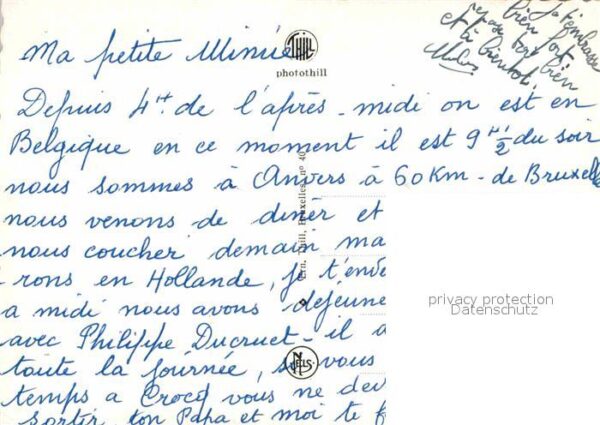 Ma petite Minie
THILL
photothill
t'embrasse
bien fort
repose toi bien
et à bientôt.
Depuis 4 H. de l'après-midi on est en
Belgique en ce moment il est 9 H 1/2 du soir
nous sommes à Anvers à 60 Km - de Bruxelle
nous venons de dîner et
nous coucher demain ma
rons en Hollande, je t'
a midi nous avons déjeune
avec Philippe Ducruet - il a
toute la journée, si vous
temps a Crocq vous ne dev
sortir, ton Papa et moi te
Ern. Thill, Bruxelles, n° 40
NELS
privacy protection
Datenschutz